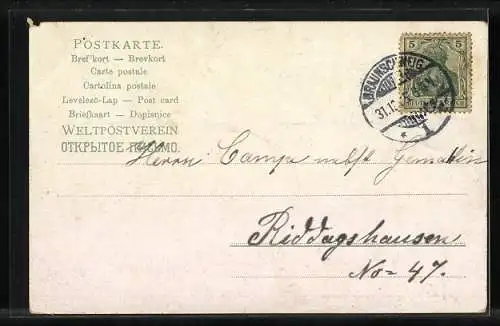 POSTKARTE.
Bref'kort — Brevkort
Carte postale
Cartolina postale
Levelezö-Lap — Post card
Briefkaart — Dopisnice
WELTPOSTVEREIN
ОТКРЫТОЕ ПИСЬМО.
5 5
BRAUNSCHWEIG
31.12.
Herrn Campe nebst Gemahlin
Riddagshausen
No = 47.